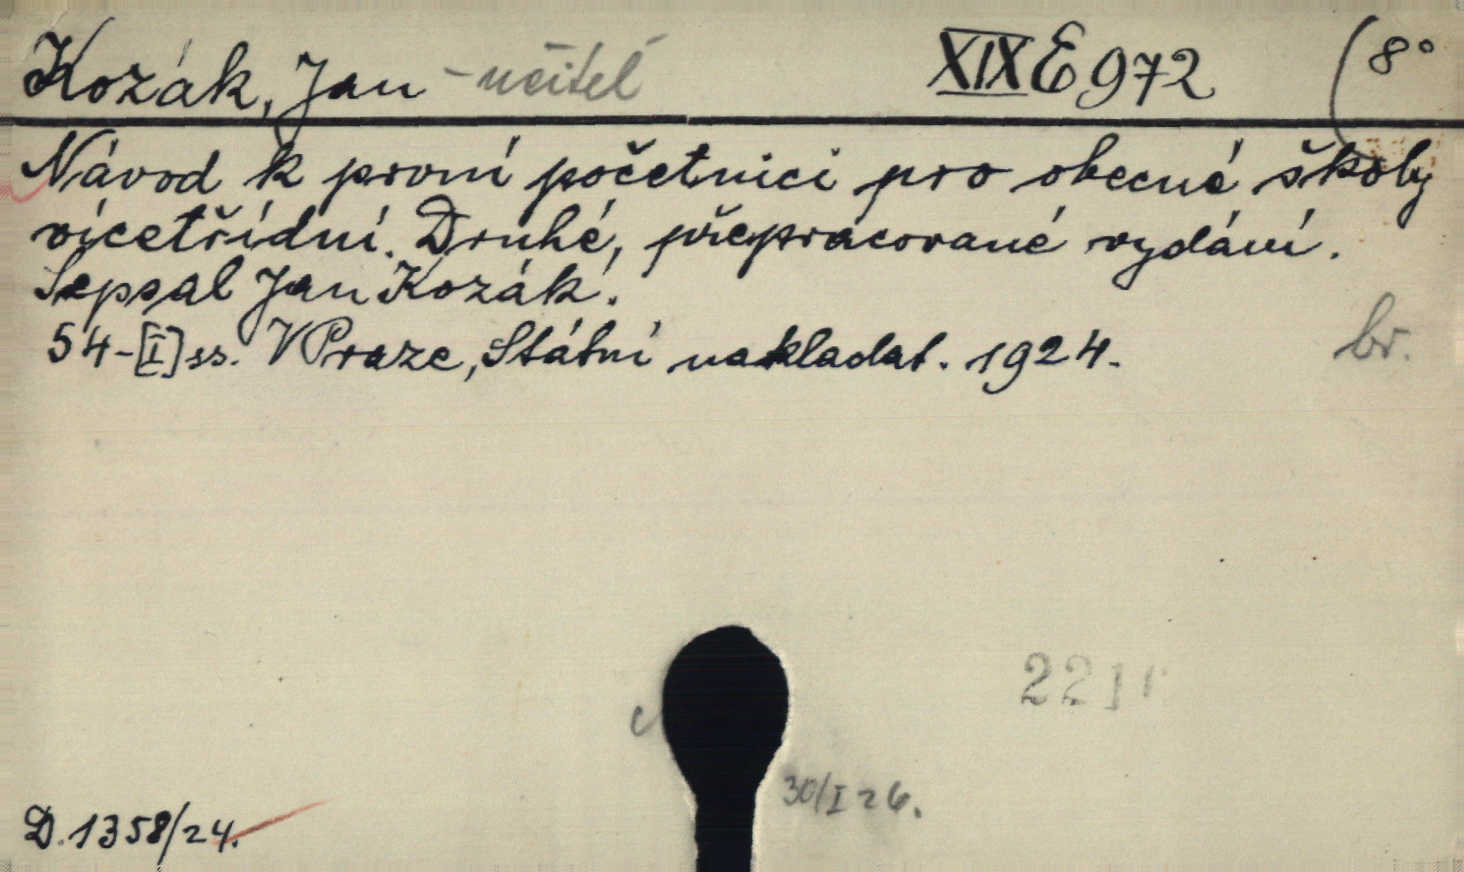 Kozák, Jan - učitel XIX E 972 (8°
Návod k první početnici pro obecné školy
vícetřídní. Druhé, přepracované vydání.
Sepsal Jan Kozák.
54-[I] ss. V Praze, Státní nakladat. 1924.
br.
30/I 26.
D. 1358/24.